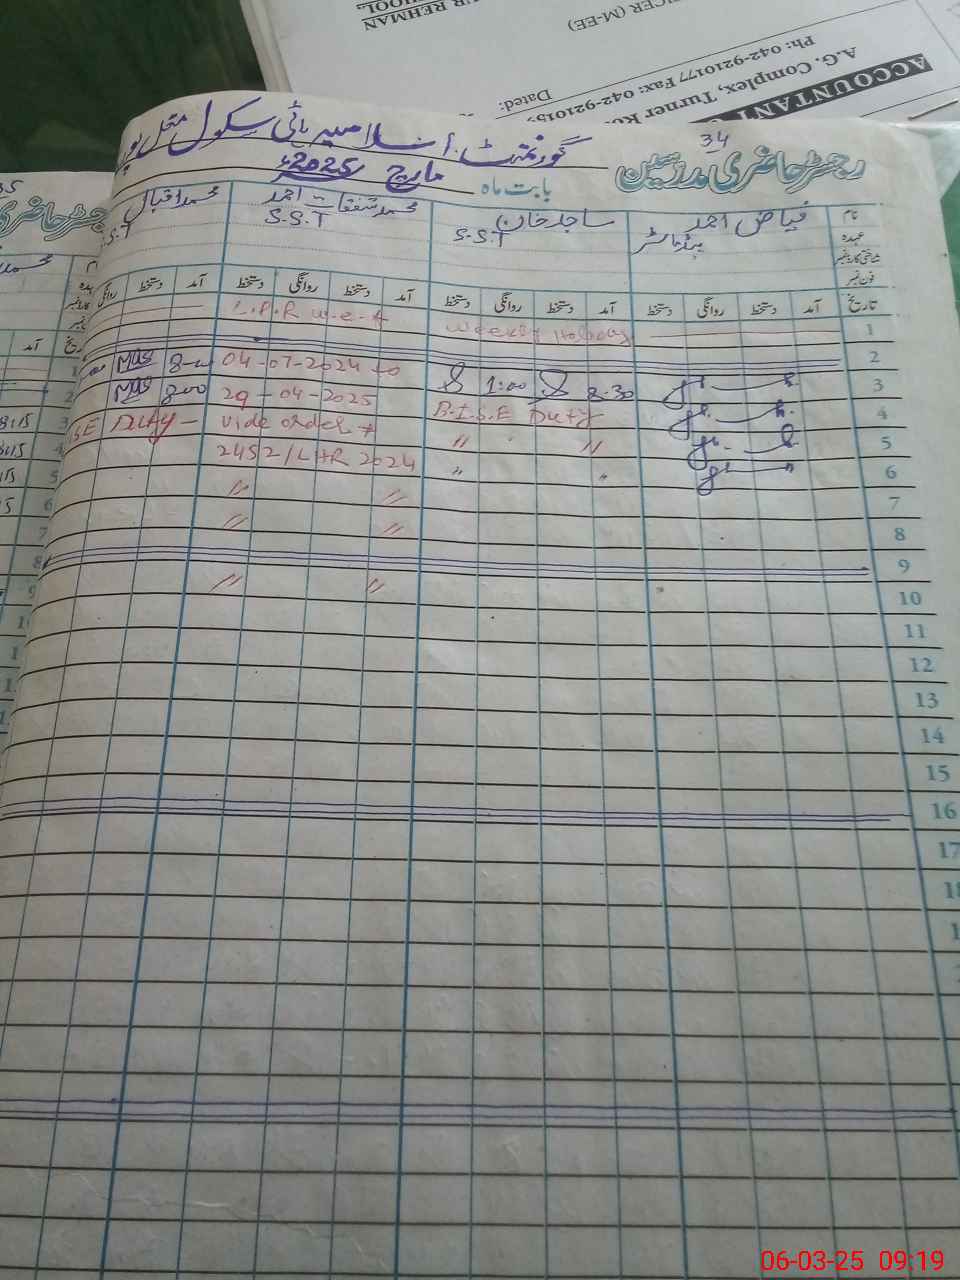 UR REHMAN
SCHOOL
ICER (M-EE)
ACCOUNTANT
A.G. Complex, Turner Ro
Ph: 042-9210177 Fax: 042-92101
Dated:
34
رجسٹر حاضری مدرسین
گورنمنٹ اسلامیہ ہائی سکول مغل پور
بابت ماہ مارچ 2025ء
نام فیاض احمد ساجد خان محمد شفقات احمد محمد اقبال
عہدہ ہیڈماسٹر S.S.T S.S.T S.T
شناختی کارڈ نمبر
فون نمبر
تاریخ آمد دستخط روانگی دستخط آمد دستخط روانگی دستخط آمد دستخط روانگی دستخط آمد دستخط روانگی
1 Weekly Holiday L.P.R w.e.f
2
3 8-30 1:00 04-07-2024 to 8-00
4 B.I.S.E Duty 29-04-2025 800
5 " " vide order # SE DUTY -
6 " " 2452/LHR 2024
7 " "
8 " "
9
10 " "
11
12
13
14
15
16
17
06-03-25 09:19